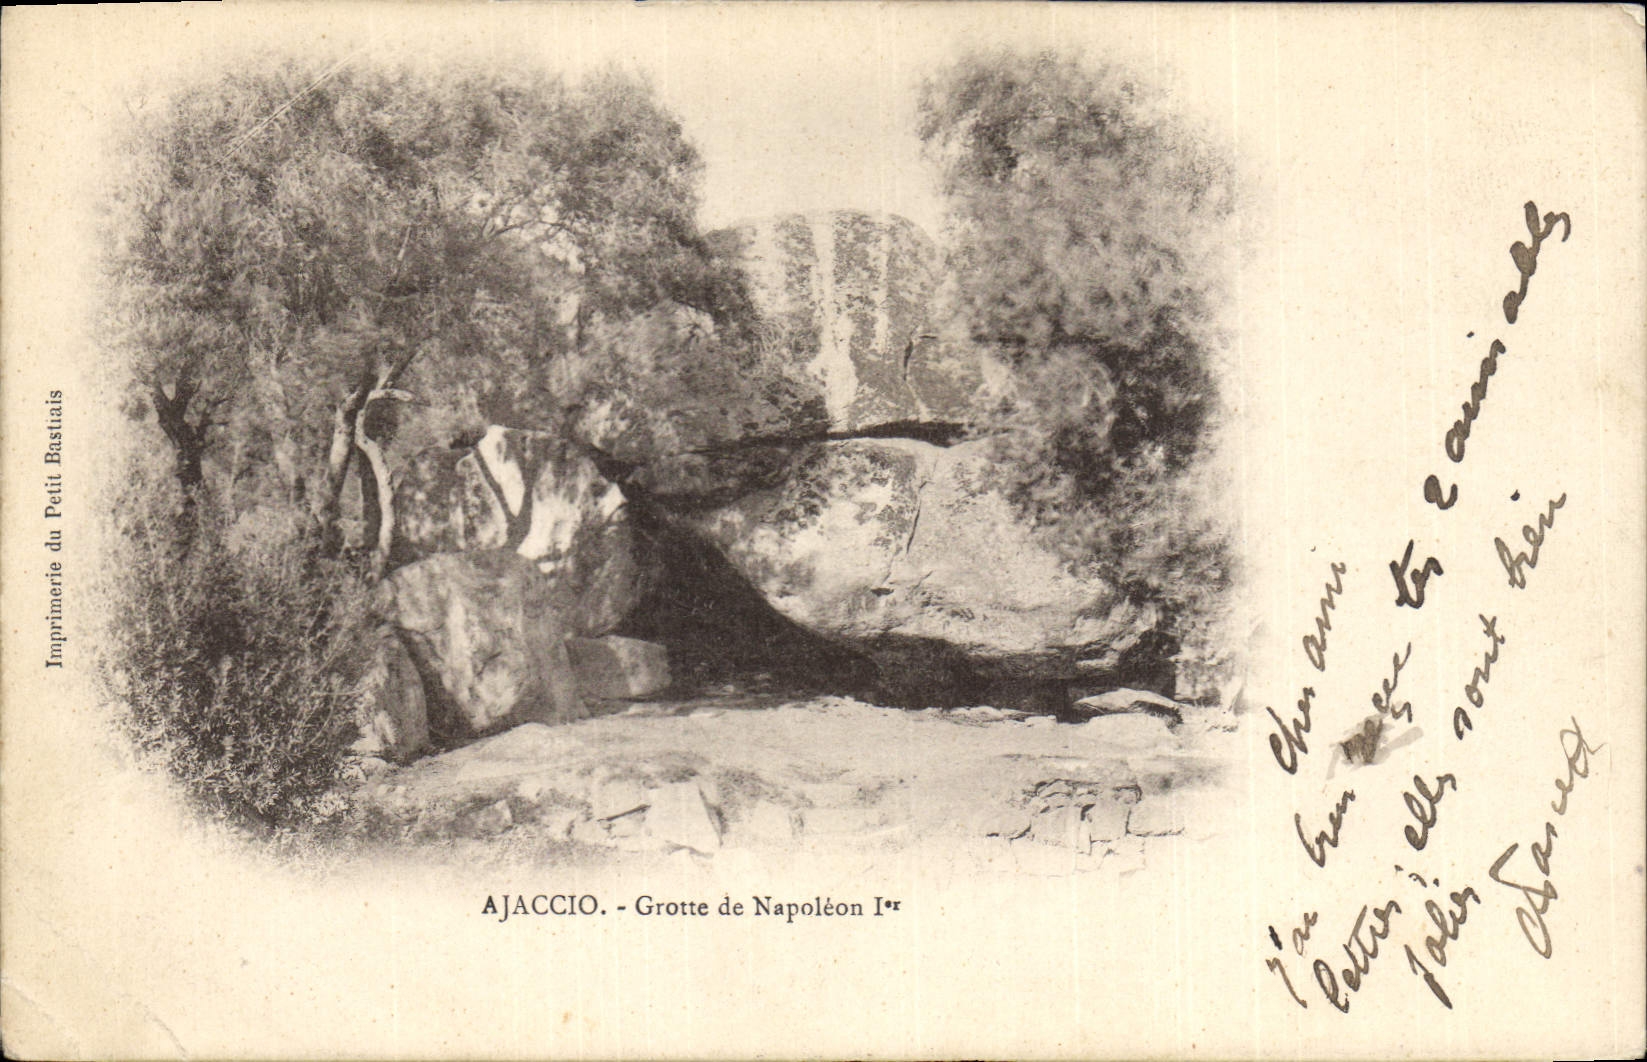 Imprimerie du Petit Bastiais
AJACCIO. - Grotte de Napoléon Ier
Cher ami
J'ai bien reçu tes 2 amicales
lettres, elles sont bien
jolies.